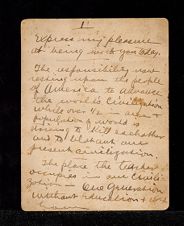 1
Express my pleasure
at being with you today.
The responsibility now
resting upon the people
of America to advance
the world's civilization
while over ½ — area &
population of world is
striving to kill each other
and to blot out our
present civilization.
The place the teacher
occupies in our civili-
zation — One generation
without education &